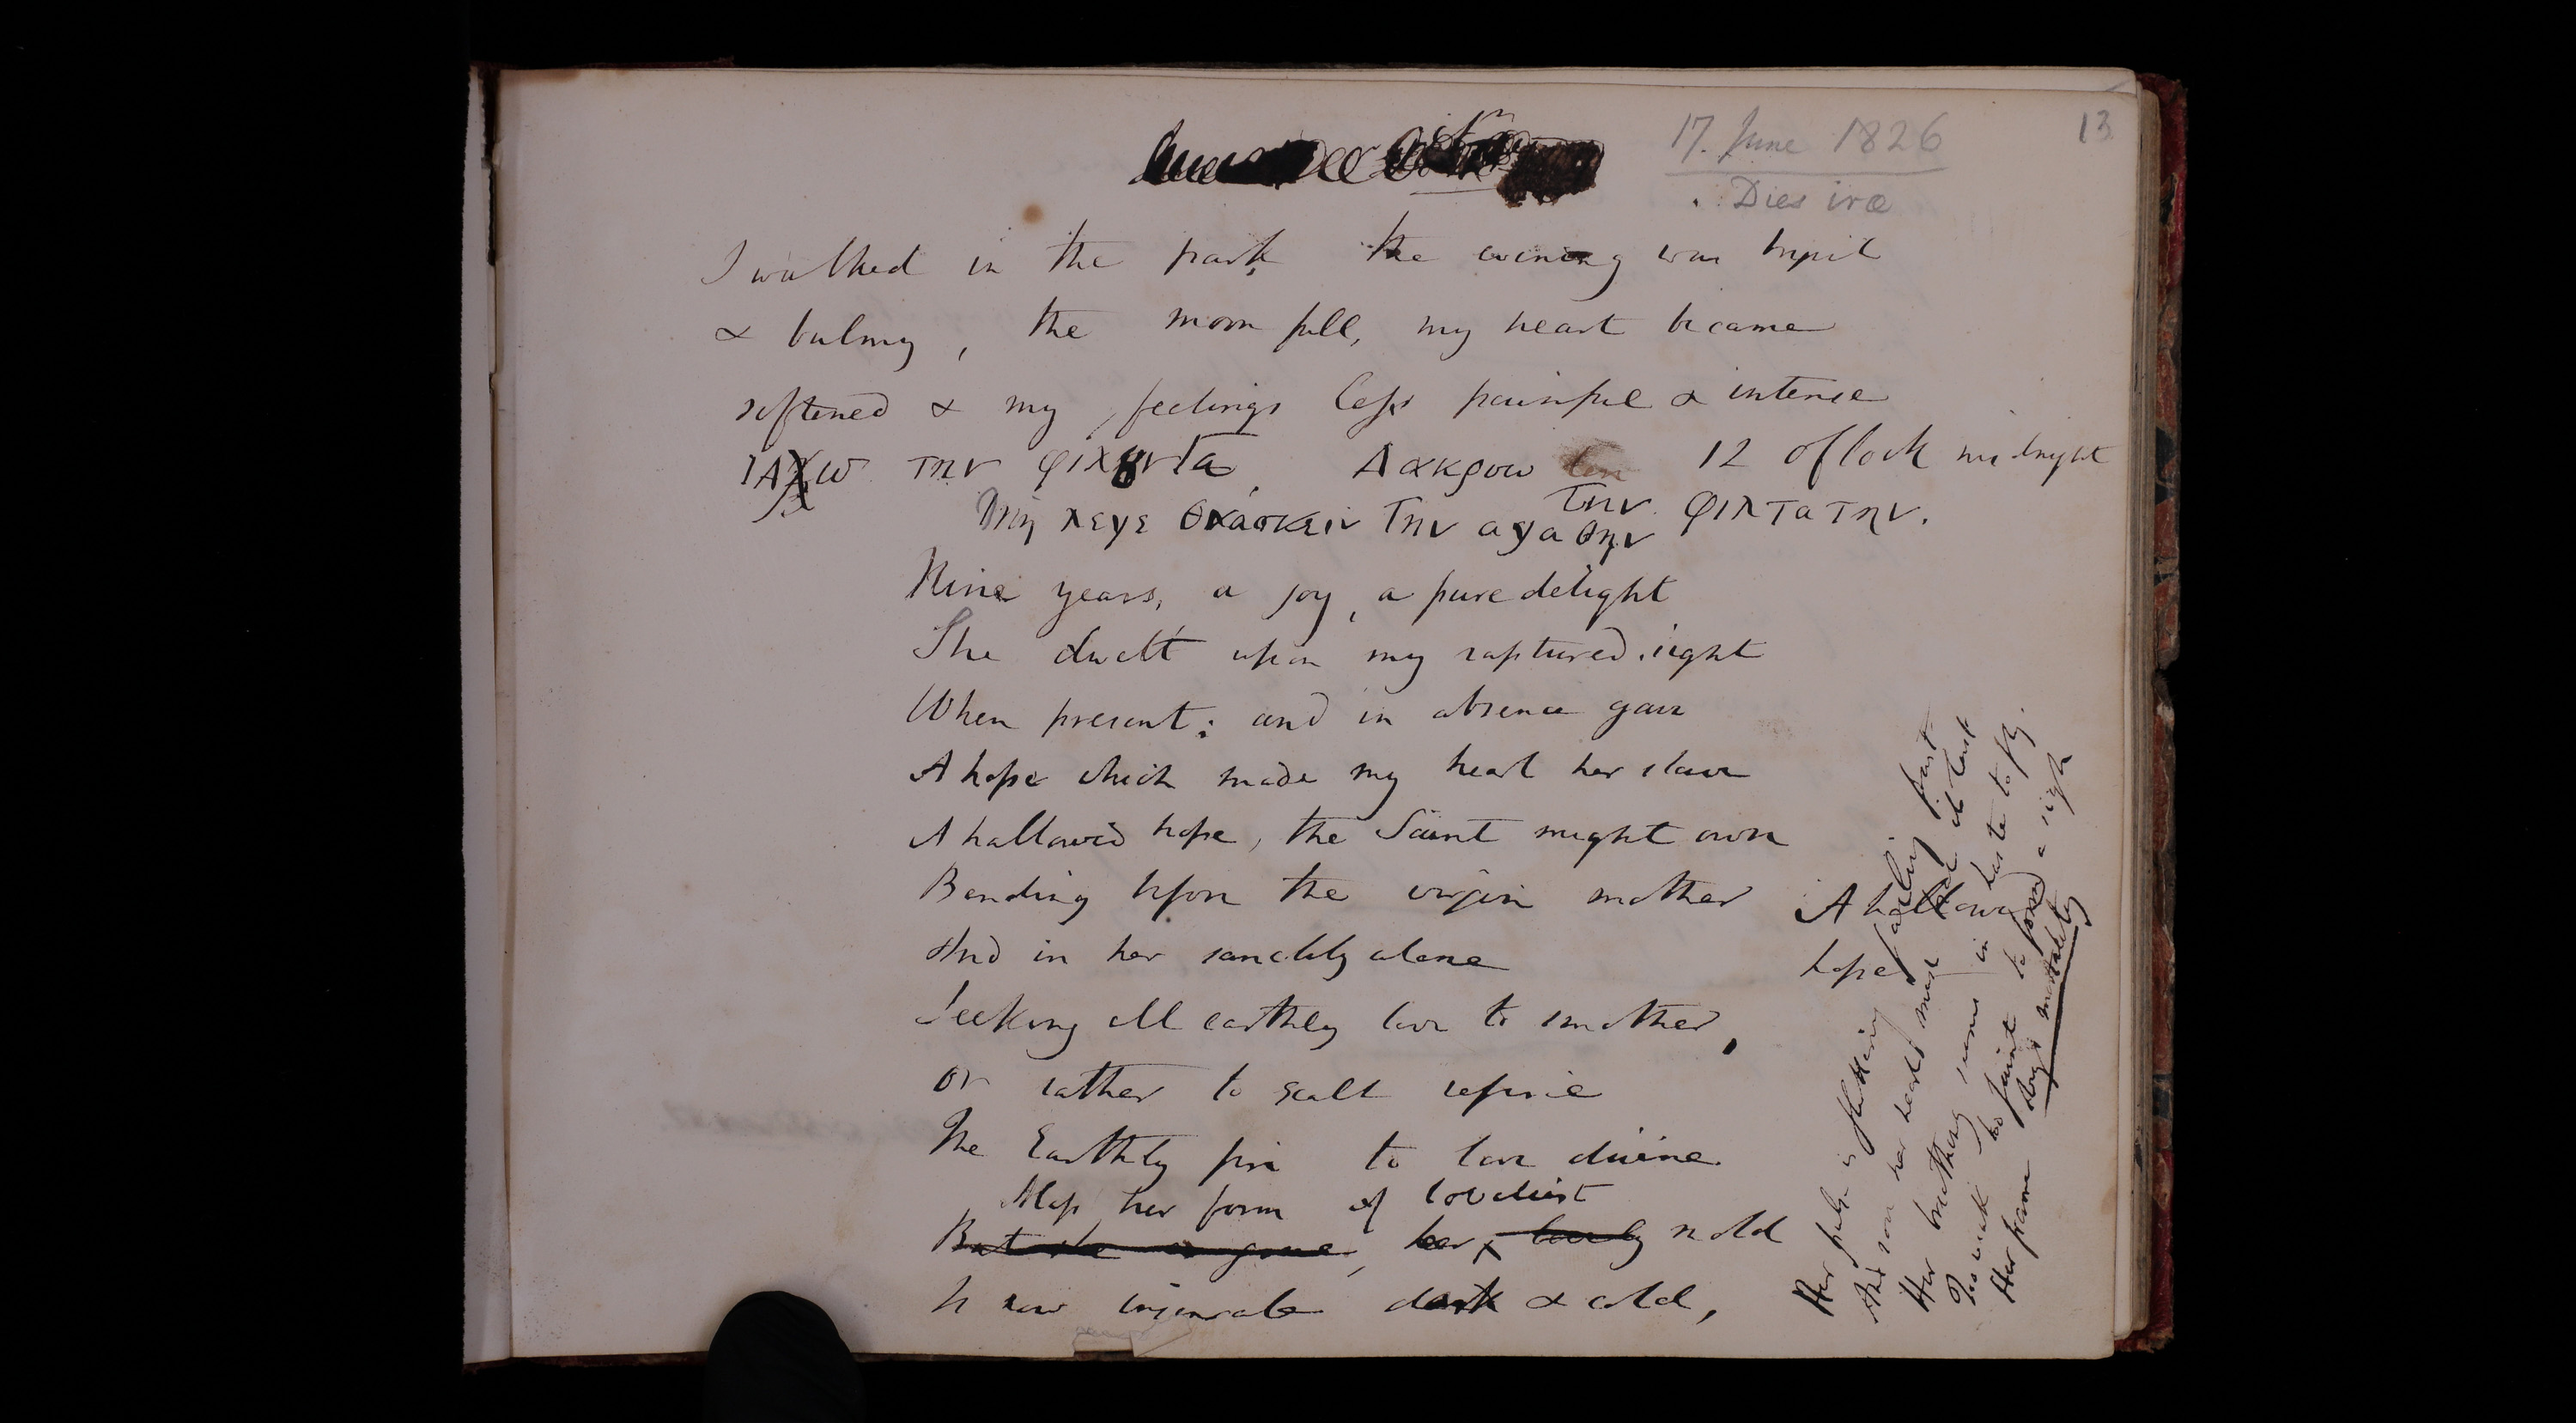 17. June 1826
13
Dies iræ
I walked in the park the evening was tepid
& balmy, the moon full, my heart became
softened & my feelings less painful & intense
την Δακρυω 12 oClock midnight
την φιλτατην.
Μη λεγε θνασκειν την αγαθην
Nine years, a joy, a pure delight
She dwelt upon my raptured sight
When present: and in absence gave
A hope which made my heart her slave
A hallowed hope, the Saint might own
Bending upon the virgin mother
And in her sanctity alone
Seeking all earthly love to smother,
or rather to exalt refine
The Earthly fire to love divine.
Alas her form of loveliest
But she is gone, her lovely mold
Is now insensate dark & cold,
A hallowed
hope
Her pulse is fluttering failing fast
And soon her heart must its last
Her breathing seems in haste to fly.
Too weak too faint to form a sigh
Her frame mortality